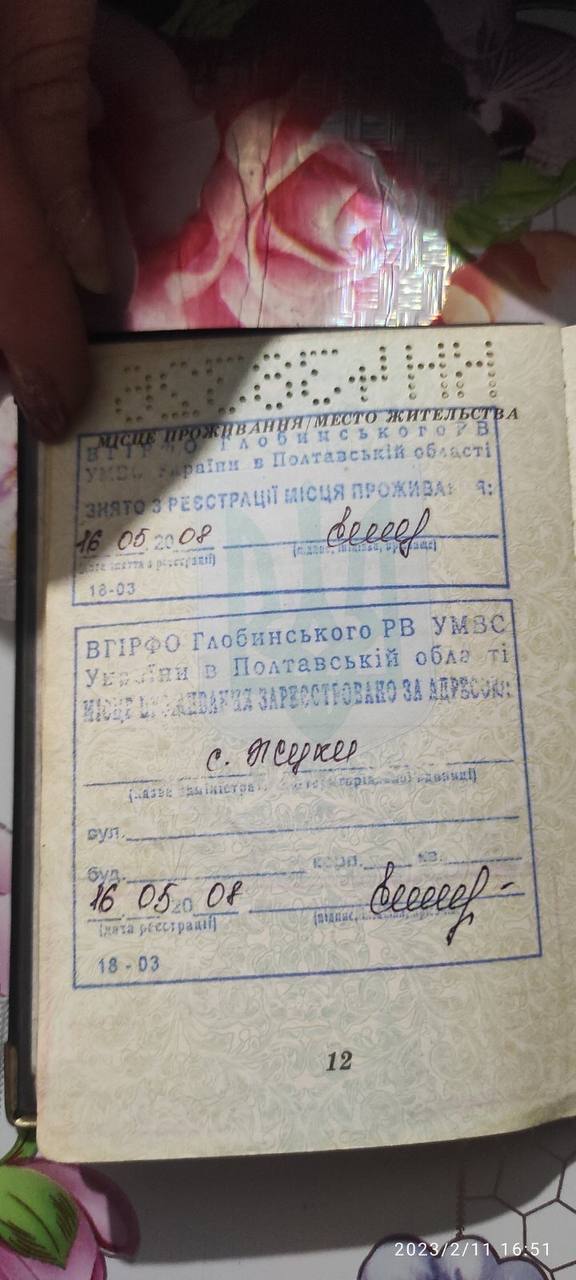 МІСЦЕ ПРОЖИВАННЯ/МЕСТО ЖИТЕЛЬСТВА
ВГІРФО Глобинського РВ
УМВС України в Полтавській області
ЗНЯТО З РЕЄСТРАЦІЇ МІСЦЯ ПРОЖИВА Я:
16 05 2008
(дата зняття з реєстрації) (підпис, ініціали, прізвище)
18-03
ВГІРФО Глобинського РВ УМВС
України в Полтавській обла ті
МІСЦЕ ПРОЖИВАННЯ ЗАРЕЄСТРОВАНО ЗА АДРЕСОЮ:
с. Жуки
(назва адміністрат. територіальної одиниці)
вул.
буд. корп. кв.
16 05 2008
(дата реєстрації) (підпис, ініціали,
18-03
12
2023/2/11 16:51